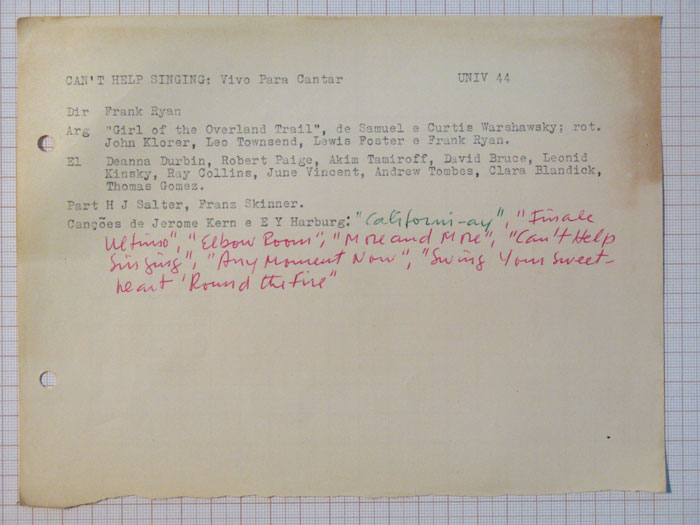 CAN'T HELP SINGING: Vivo Para Cantar UNIV 44
Dir Frank Ryan
Arg "Girl of the Overland Trail", de Samuel e Curtis Warshawsky; rot.
John Klorer, Leo Townsend, Lewis Foster e Frank Ryan.
El Deanna Durbin, Robert Paige, Akim Tamiroff, David Bruce, Leonid
Kinsky, Ray Collins, June Vincent, Andrew Tombes, Clara Blandick,
Thomas Gomez.
Part H J Salter, Franz Skinner.
Canções de Jerome Kern e E Y Harburg: "Californi-ay", "Finale
Ultimo", "Elbow Room", "More and More", "Can't Help
Singing", "Any Moment Now", "Swing Your Sweet-
heart 'Round the Fire"